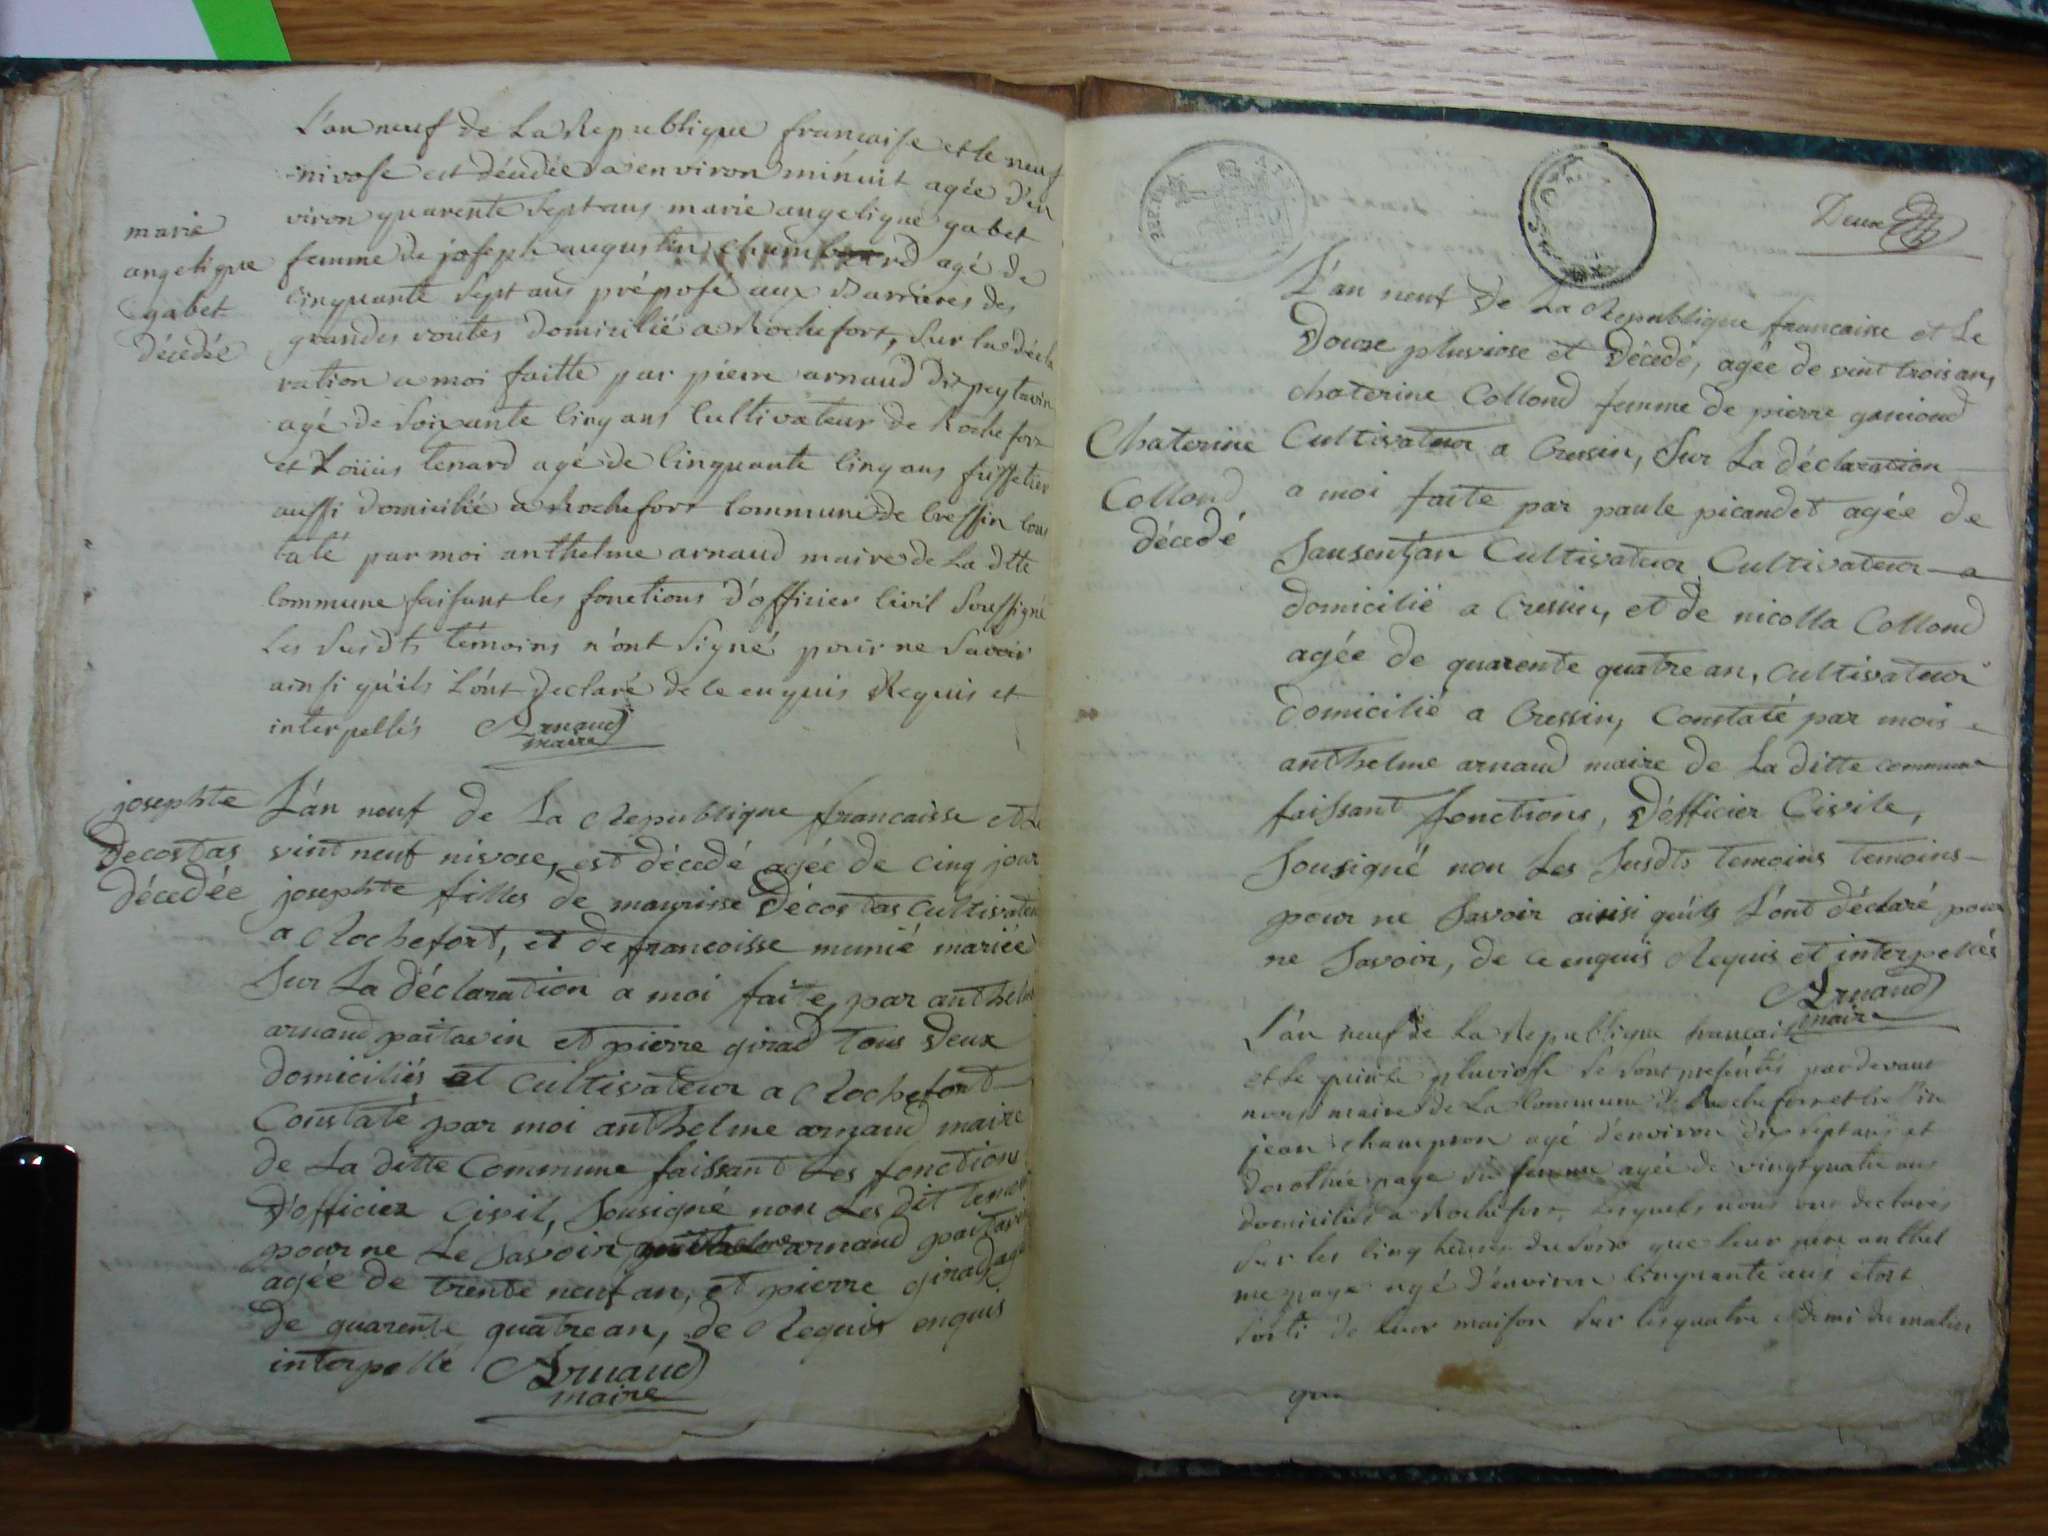 L'an neuf de La Republique francaise et le neuf
nivose est décédée a environ minuit agée d'en
viron quarente Sept ans marie angelique gabet
femme de joseph augustin agé de
cinquante Sept ans préposé aux Barrieres des
grandes routes domicilié a Rochefort, Sur la décla
ration a moi faitte par pierre arnaud dit peytavin
agé de Soixante Cinq ans Cultivateur de Rochefort
et Loüis tenard agé de Cinquante Cinq ans
aussi domicilié a Rochefort Commune de Cressin Cons
taté par moi anthelme arnaud maire de La dtte
Commune faisant les fonctions d'officier Civil Soussigné
Les Susdts témoins n'ont Signé pour ne Savoir
ainsi qu'ils L'ont Declaré de ce enquis Requis et
interpellés Arnaud
maire
marie
angelique
gabet
décedée
josephte
Decostas
décedée
L'an neuf de La Republique francaisse et Le
vint neuf nivose, est décedé agée de cinq jour
josephte filles de maurisse Décostas Cultivateur
a Rochefort, et de francoisse munié mariée
Sur La déclaration a moi faite, par anthelme
arnaud paitavin et pierre girad tous deux
domiciliés et cultivateur a Rochefort
Constaté par moi anthelme arnaud maire
de La ditte Commune faissant Les fonctions
D'officier Civil, Sousigné non Les dit temoi
pour ne Le Savoir arnaud paitavin
agée de trente neuf an, et pierre girad agé
de quarente quatre an, de Requis enquis
interpellé Arnaud
maire
Deux
L'an neuf De La Republique francaisse et Le
Douze pluviose et Décedé, agée de vint trois an,
chaterine Collond femme de pierre
Cultivateur a Cressin, Sur La déclaration
a moi faite par paule picandet agée de
Cultivateur Cultivateur a
domicilié a Cressin, et de nicolla Collond
agée de quarente quatre an, cultivateur
domicilié a Cressin, Constaté par mois
anthelme arnaud maire de La ditte commune
faissant fonctions, D'officier Civile,
Sousigné non Les Susdts temoins temoins
pour ne Savoir ainsi qu'ils L'ont déclaré pour
ne Savoir, de ce enquis Requis et interpellés
Arnaud
maire
Chaterine
Collond
décedé
L'an neuf de La Republique francaise
et Le pluviosse Se Sont présentés pardevant
nous maire de La Commune de Rochefort et
jean champion agé d'environ dix sept ans et
dorothée page Sa femme agée de vingt quatre ans
domiciliés a Rochefort, Lesquels nous ont declarés
Sur les Cinq heures du Soir que leur père anthel
me page agé d'environ Cinquante ans étoit
Sorti de leur maison Sur les quatre et demi du matin
que